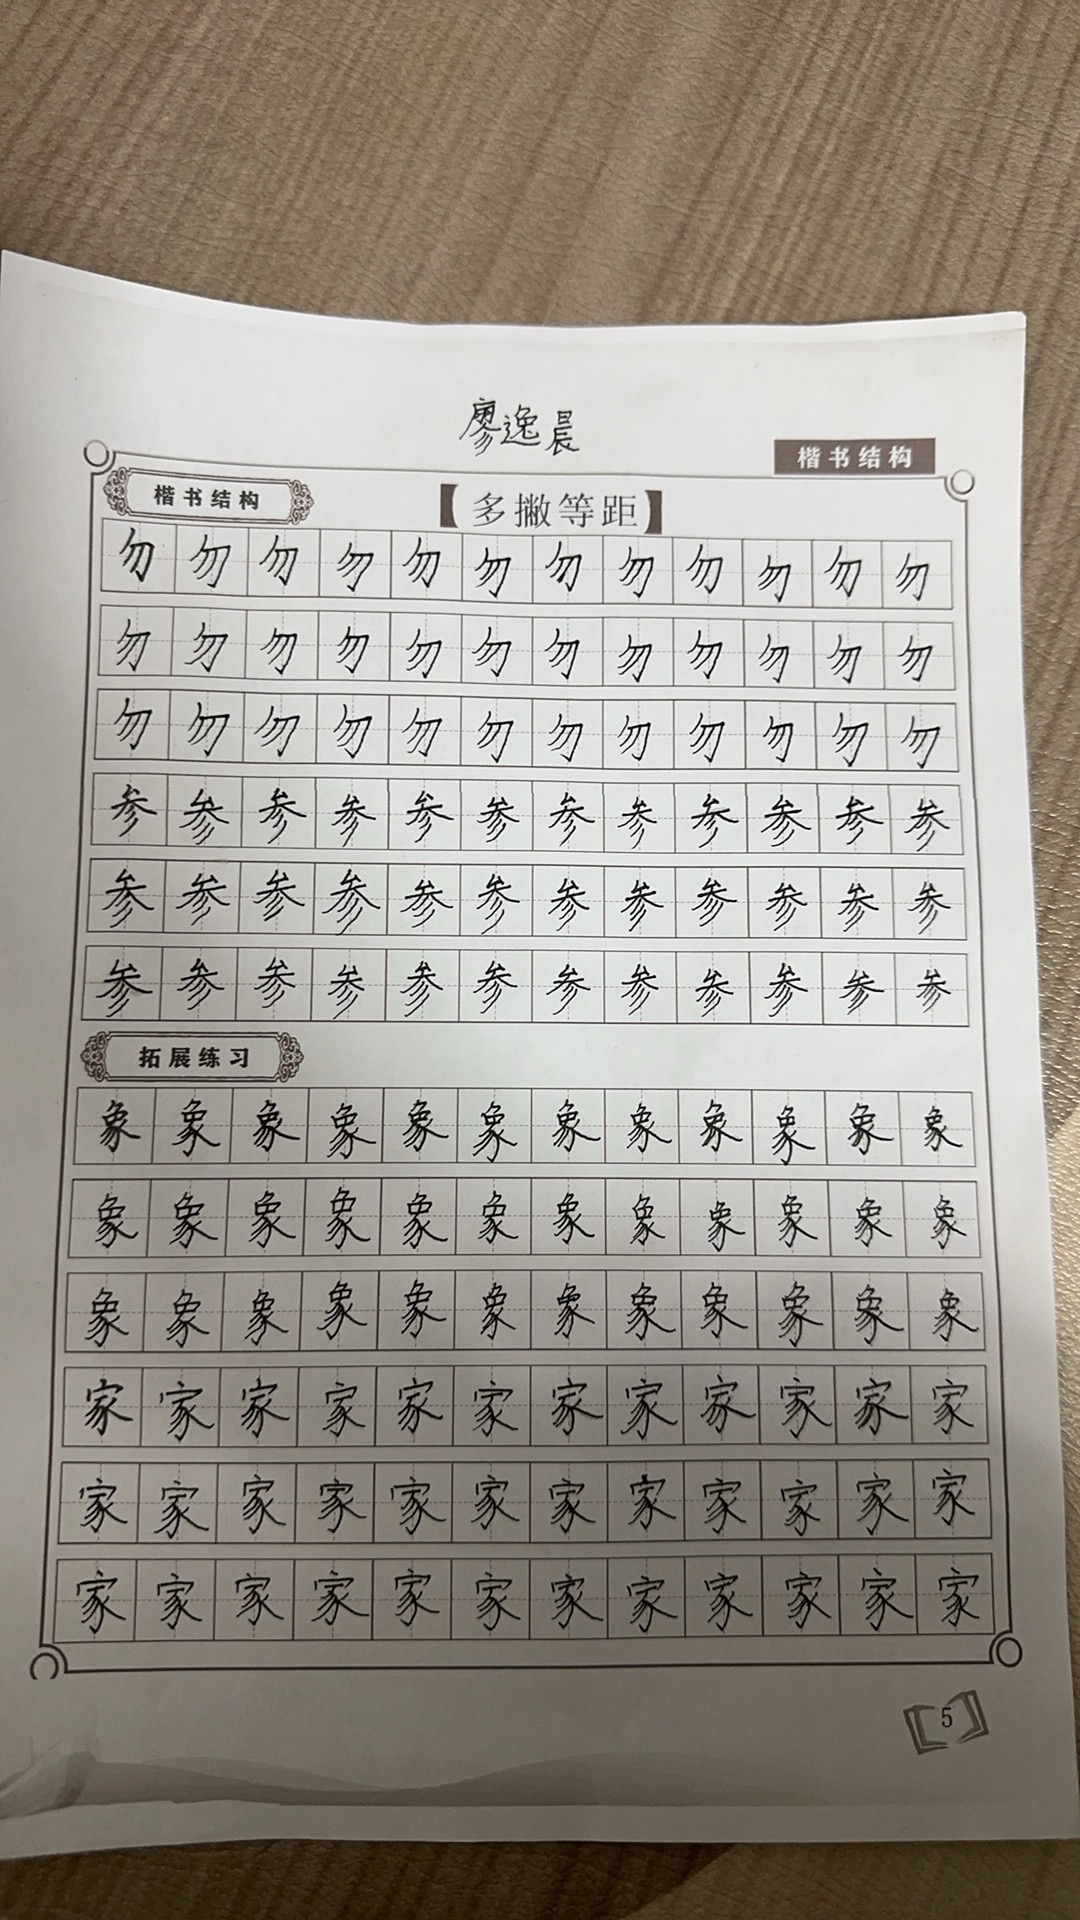 廖逸晨
楷书结构
楷书结构
【多撇等距】
勿勿勿勿勿勿勿勿勿勿勿勿
勿勿勿勿勿勿勿勿勿勿勿勿
勿勿勿勿勿勿勿勿勿勿勿勿
参参参参参参参参参参参参
参参参参参参参参参参参参
参参参参参参参参参参参参
拓展练习
象象象象象象象象象象象象
象象象象象象象象象象象象
象象象象象象象象象象象象
家家家家家家家家家家家家
家家家家家家家家家家家家
家家家家家家家家家家家家
5